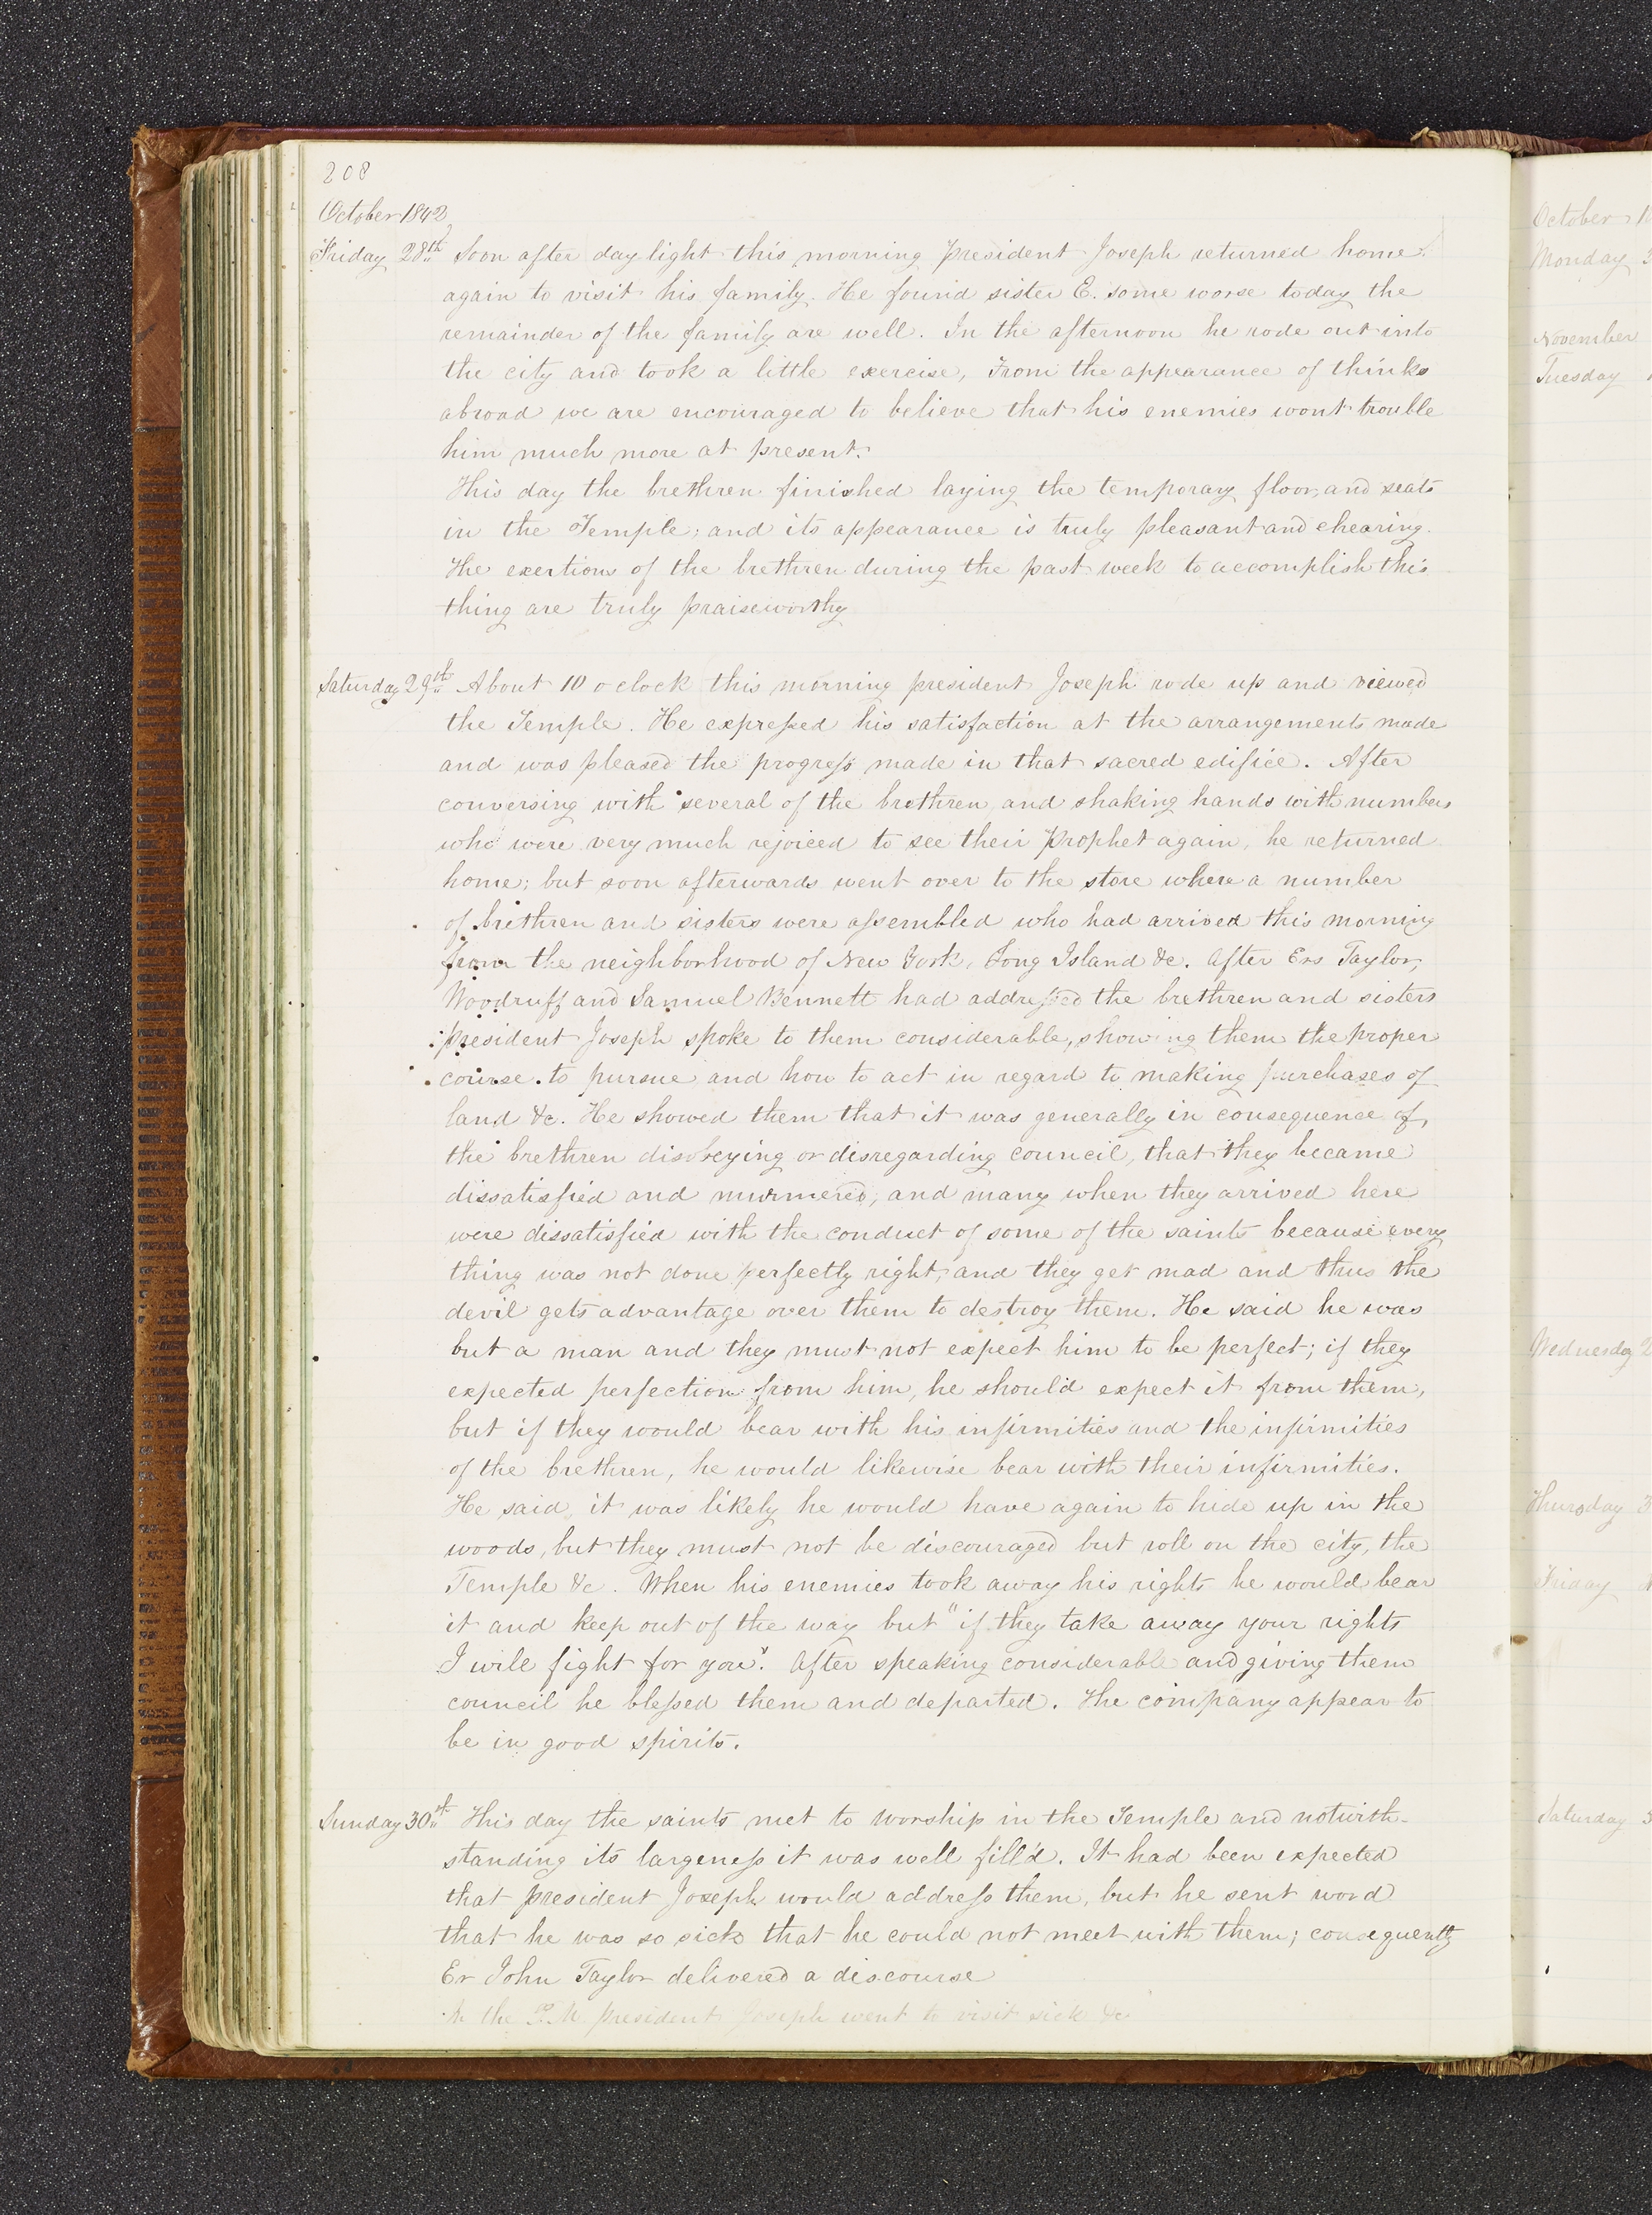 208
October 1842
Friday 28th Soon after day light this morning president Joseph returned home
again to visit his family. He found sister E. some worse today the
remainder of the family are well. In the afternoon he rode out into
the city and took a little exercise, From the appearance of thinks
abroad we are encouraged to believe that his enemies wont trouble
him much more at present.
This day the brethren finished laying the temporary floor, and seats
in the Temple; and its appearance is truly pleasant and chearing.
The exertions of the brethren during the past week to accomplish this
thing are truly praiseworthy
Saturday 29th About 10 o clock this morning president Joseph rode up and viewed
the Temple. He expressed his satisfaction at the arrangements made
and was pleased the progress made in that sacred edifice. After
conversing with several of the brethren, and shaking hands with numbers
who were very much rejoiced to see their Prophet again, he returned
home; but soon afterwards went over to the store where a number
of brethren and sisters were assembled who had arrived this morning
from the neighborhood of New York, Long Island &c. After Ers Taylor,
Woodruff and Samuel Bennett had addressed the brethren and sisters
president Joseph spoke to them considerable, showing them the proper
course to pursue and how to act in regard to making purchases of
land &c. He showed them that it was generally in consequence of
the brethren disobeying or disregarding council, that they became
dissatisfied and murmered; and many when they arrived here
were dissatisfied with the conduct of some of the saints because every
thing was not done perfectly right, and they get mad and thus the
devil gets advantage over them to destroy them. He said he was
but a man and they must not expect him to be perfect; if they
expected perfection from him, he should expect it from them,
but if they would bear with his infirmities and the infirmities
of the brethren, he would likewise bear with their infirmities.
He said, it was likely he would have again to hide up in the
woods, but they must not be discouraged but roll on the city, the
Temple &c. When his enemies took away his rights he would bear
it and keep out of the way but "if they take away your rights
I will fight for you". After speaking considerable and giving them
council he blessed them and departed. The company appear to
be in good spirits.
Sunday 30th This day the saints met to worship in the Temple and notwith-
standing its largeness it was well fill'd. It had been expected
that president Joseph would address them, but he sent word
that he was so sick that he could not meet with them; consequently
Er John Taylor delivered a discourse
In the P.M. president Joseph went to visit sick &c
October 1
Monday 3
November
Tuesday
Wednesday 2
Thursday 3
Friday
Saturday 5